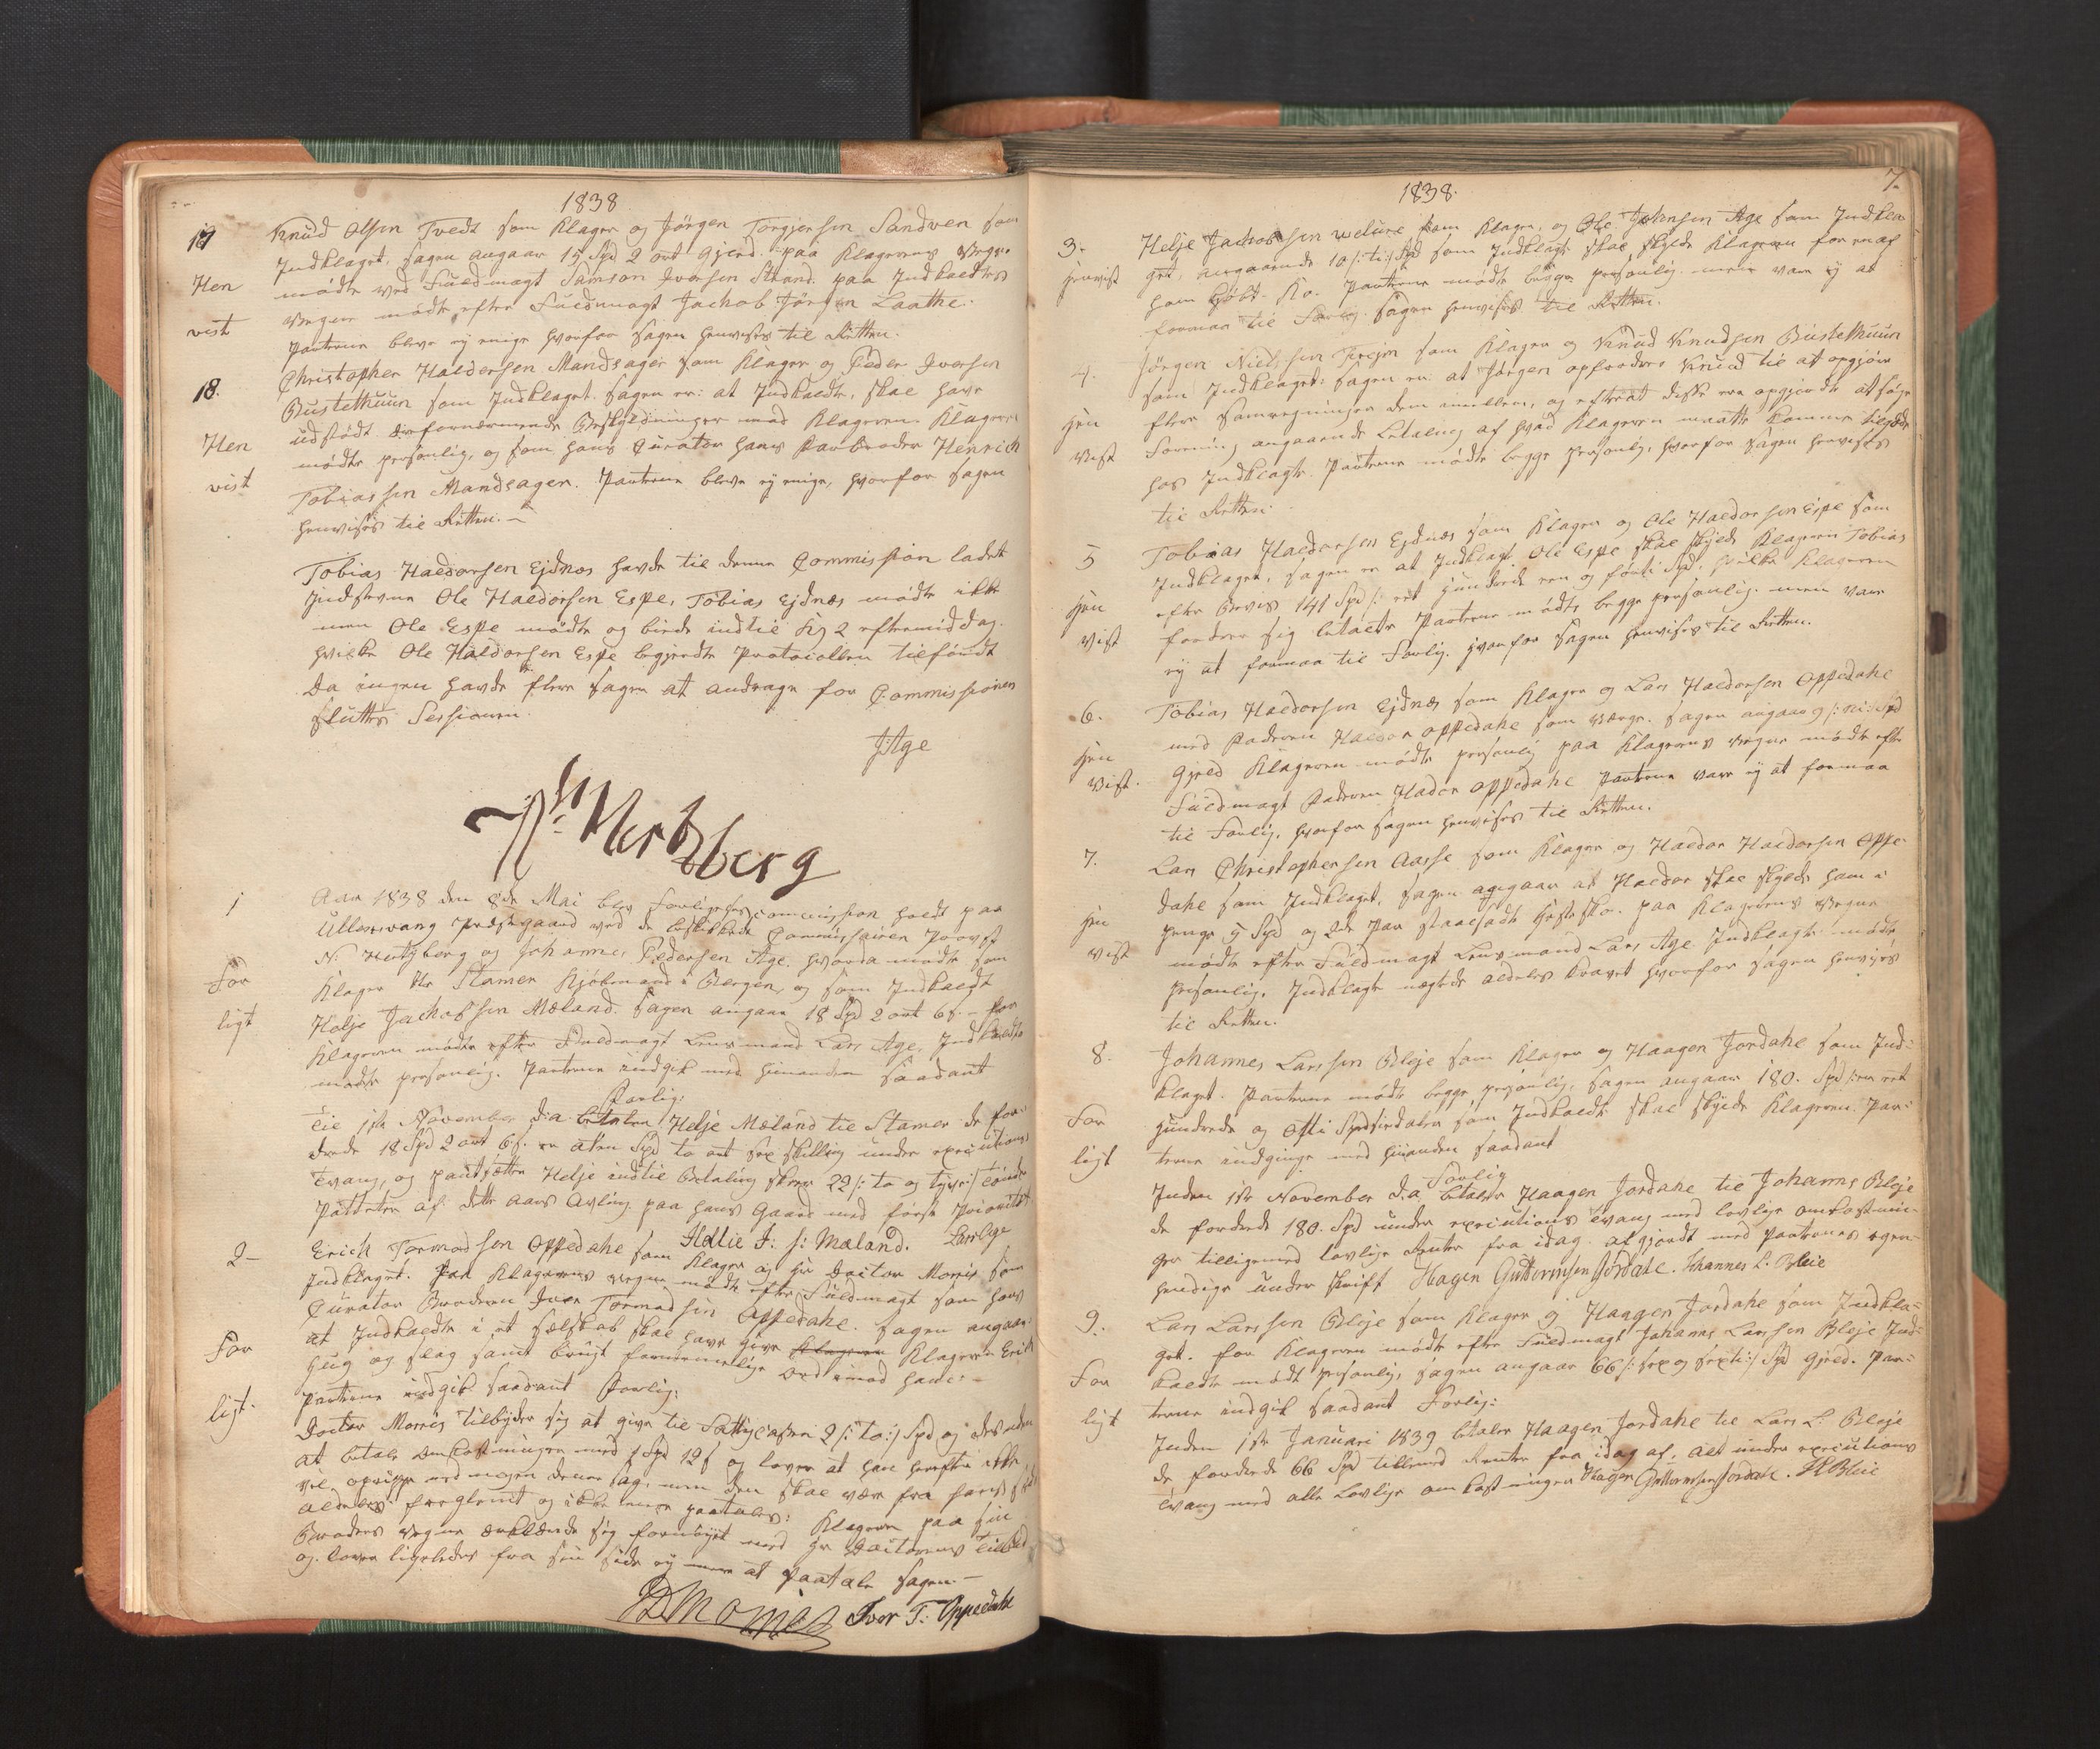 1838
17
Hen
vist
Knud Olsen Tvedt som Klager og Jörgen Torgjersen Sandven som
Indklaget. Sagen angaar 15 Spd 2 ort Gjeld. paa Klagerens Vegne
mödte ved Fuldmagt Samson Iversen Strand. paa Indkaldtes
Vegne mödte efter Fuldmagt Jachob Jörgen Laathe.
Parterne bleve ej enige hvorfor Sagen henvises til Retten.
18.
Hen
vist
Christopher Haldorsen Mandsager som Klager og Peder Iversen
Bustethuun som Indklaget. Sagen er: at Indkaldte, skal have
udstödt fornærmende Beskyldninger mod Klageren. Klageren
mödte personlig, og som hans Curator hans Farbroder Henrich
Tobiassen Mandsager. Parterne bleve ej enige, hvorfor Sagen
henvises til Retten. –
Tobias Haldorsen Ejdnæs havde til denne Commission ladet
indstevne Ole Haldorsen Espe, Tobias Ejdnæs mödte ikke
men Ole Espe mödte og biede indtil Kl 2 eftermiddag.
hvilke Ole Haldorsen Espe begjerdte Protocollen tilfördt
Da ingen havde flere Sager at andrage for Commissionen
sluttes Sessionen.
J: Age
Ns. Hertzberg
1
For
ligt
Aar 1838 den 8de Mai blev Forligelsescommission holdt paa
Ullensvang Præstegaard ved de beskikkede Commissairer Provst
N. Hertzberg og Johannes Pedersen Age. hvorda mödte som
Klager Hr Stamer Kjöbmand i Bergen, og som Indkaldt
Helje Jachobsen Mæland. Sagen angaar 18 Spd 2 ort 6 s. – for
Klageren mödte efter Fuldmagt Lensmand Lars Age, Indkaldte
mødte personlig. Parterne indgik med hinanden saadant
Forlig:
Til 1ste November d: a: betaler Helje Mæland til Stamer de for-
drede 18 Spd 2 ort 6 s. er atten Spd to ort sex skilling under executions
Tvang, og pantsætter Helje indtil Betaling skeer 22 /: to og tyve :/ tönder
Potteter af dette Aars Avling paa hans Gaard med förste Prioritet
Hellie J: s: Mæland. Lars Age
2 –
For
ligt.
Erich Tormodsen Oppedahl som Klager og Hr Doctor Morris som
Indklaget. Paa Klagerens Vegne mödte efter Fuldmagt som hans
Curator Broderen Iver Tormodsen Oppedahl. Sagen angaar
at Indkaldte i et Selskab skal have give Klageren Klageren Erich
hug og slag samt brugt fornærmelige ord imod ham: –
Parterne indgik saadant Forlig:
Doctor Morris tilbyder sig at give til Fattigcassen 2 /: to :/ Spd og desuden
at betale Omkostningen med 1 Spd 12 s og lover at han herefter ikke
vil oprippe ved nogen denne Sag, men den skal være fra hans side
aldeles forglemt og ikke mere paatales: Klageren paa sin
Broders Vegne erklærede sig fornöjet med Hr Doctorens Tilbud
og lover ligeledes fra sin side ej mere at paatale Sagen. –
Morris Iver T: Oppedahl
1838.
7.
3.
Henvist
Helje Jachobsen Velure som Klager, og Ole Johnsen Age som Indkla-
get, angaaende 10 /: ti :/ Spd som Indklagte skal skylde Klageren for en af
ham kjöbt Ko. Parterne mödte begge personlig. men vare ej at
formaa til Forlig. Sagen henvises til Retten.
4.
Hen
vist
Jörgen Nielssen Frejm som Klager og Knud Knudsen Bustethuun
som Indklaget: Sagen er: at Jörgen opfordrer Knud til at opgjöre
flere Samregninger dem imellem, og efterat disse ere opgjordte at söge
Forening angaaende betaling af hvad Klageren maatte komme tilgode
hos Indklagte. Parterne mödte begge personlig, hvorfor Sagen henvises
til Retten.
5
Hen
vist
Tobias Haldorsen Ejdnæs som Klager og Ole Haldorsen Espe som
Indklaget, Sagen er at Indklagt. Ole Espe skal skylde Klageren Tobias
efter Bevis 141 Spd /: et hundrede een og förti Spd, hvilke Klageren
fordrer sig betalte Parterne mödte begge personlig. men vare
ej at formaa til Forlig. hvorfor Sagen henvises til Retten.
6.
Hen
vist.
Tobias Haldorsen Ejdnæs som Klager og Lars Haldorsen Oppedahl
med Faderen Haldor Oppedahl som Værge. Sagen angaar 9 /: ni :/ Spd
Gjeld Klageren mödte personlig paa Klagerens Vegne mödte efter
Fuldmagt Faderen Hador Oppedahl Parterne vare ej at formaa
til Forlig. hvorfor Sagen henvises til Retten.
7.
Hen
vist
Lars Christophersen Aasse som Klager og Haldor Haldorsen Oppe-
dahl som Indklaget, Sagen angaaer at Haldor skal skylde ham i
penge 5 Spd og 2de Par Hestesko. paa Klagerens Vegne
mödte efter Fuldmagt Lensmand Lars Age Indklagte mödte
personlig. Indklagte nægtede aldeles kravet hvorfor Sagen henvises
til Retten.
8.
For
ligt
Johannes Larssen Bleje som Klager og Haagen Jordahl som Ind-
klaget. Parterne mödte begge personlig, Sagen angaar 180. Spd /: er et
hundrede og Otti Speciedaler som Indkaldte skal skylde Klageren. Par-
terne indginge med hinanden saadant
Forlig
Inden 1ste November d. a. betaler Haagen Jordahl til Johannes Bleje
de fordrede 180. Spd under executions Tvang med lovlige Omkostnin-
ger tilligemed lovlige Renter fra idag. afgjordt med Parternes egen-
hendige under skrift Hagen Guttormsen Jordahl. Johannes L. Bleie
9.
For
ligt
Lars Larssen Bleje som Klager og Haagen Jordahl som Indkla-
get. for Klageren mödte efter Fuldmagt Johannes Larssen Bleje Ind-
kaldte mödt personlig, Sagen angaar 66 /: sex og sexti :/ Spd Gjeld. Par-
terne indgik saadant Forlig:
Inden 1ste Januari 1839 betaler Haagen Jordahl til Lars L: Bleje
de fordrede 66 Spd tillemed Renter fra idag af, alt under executions
tvang med alle Lovlige omkostninger Hagen Guttormsen Jordahl. Bleie